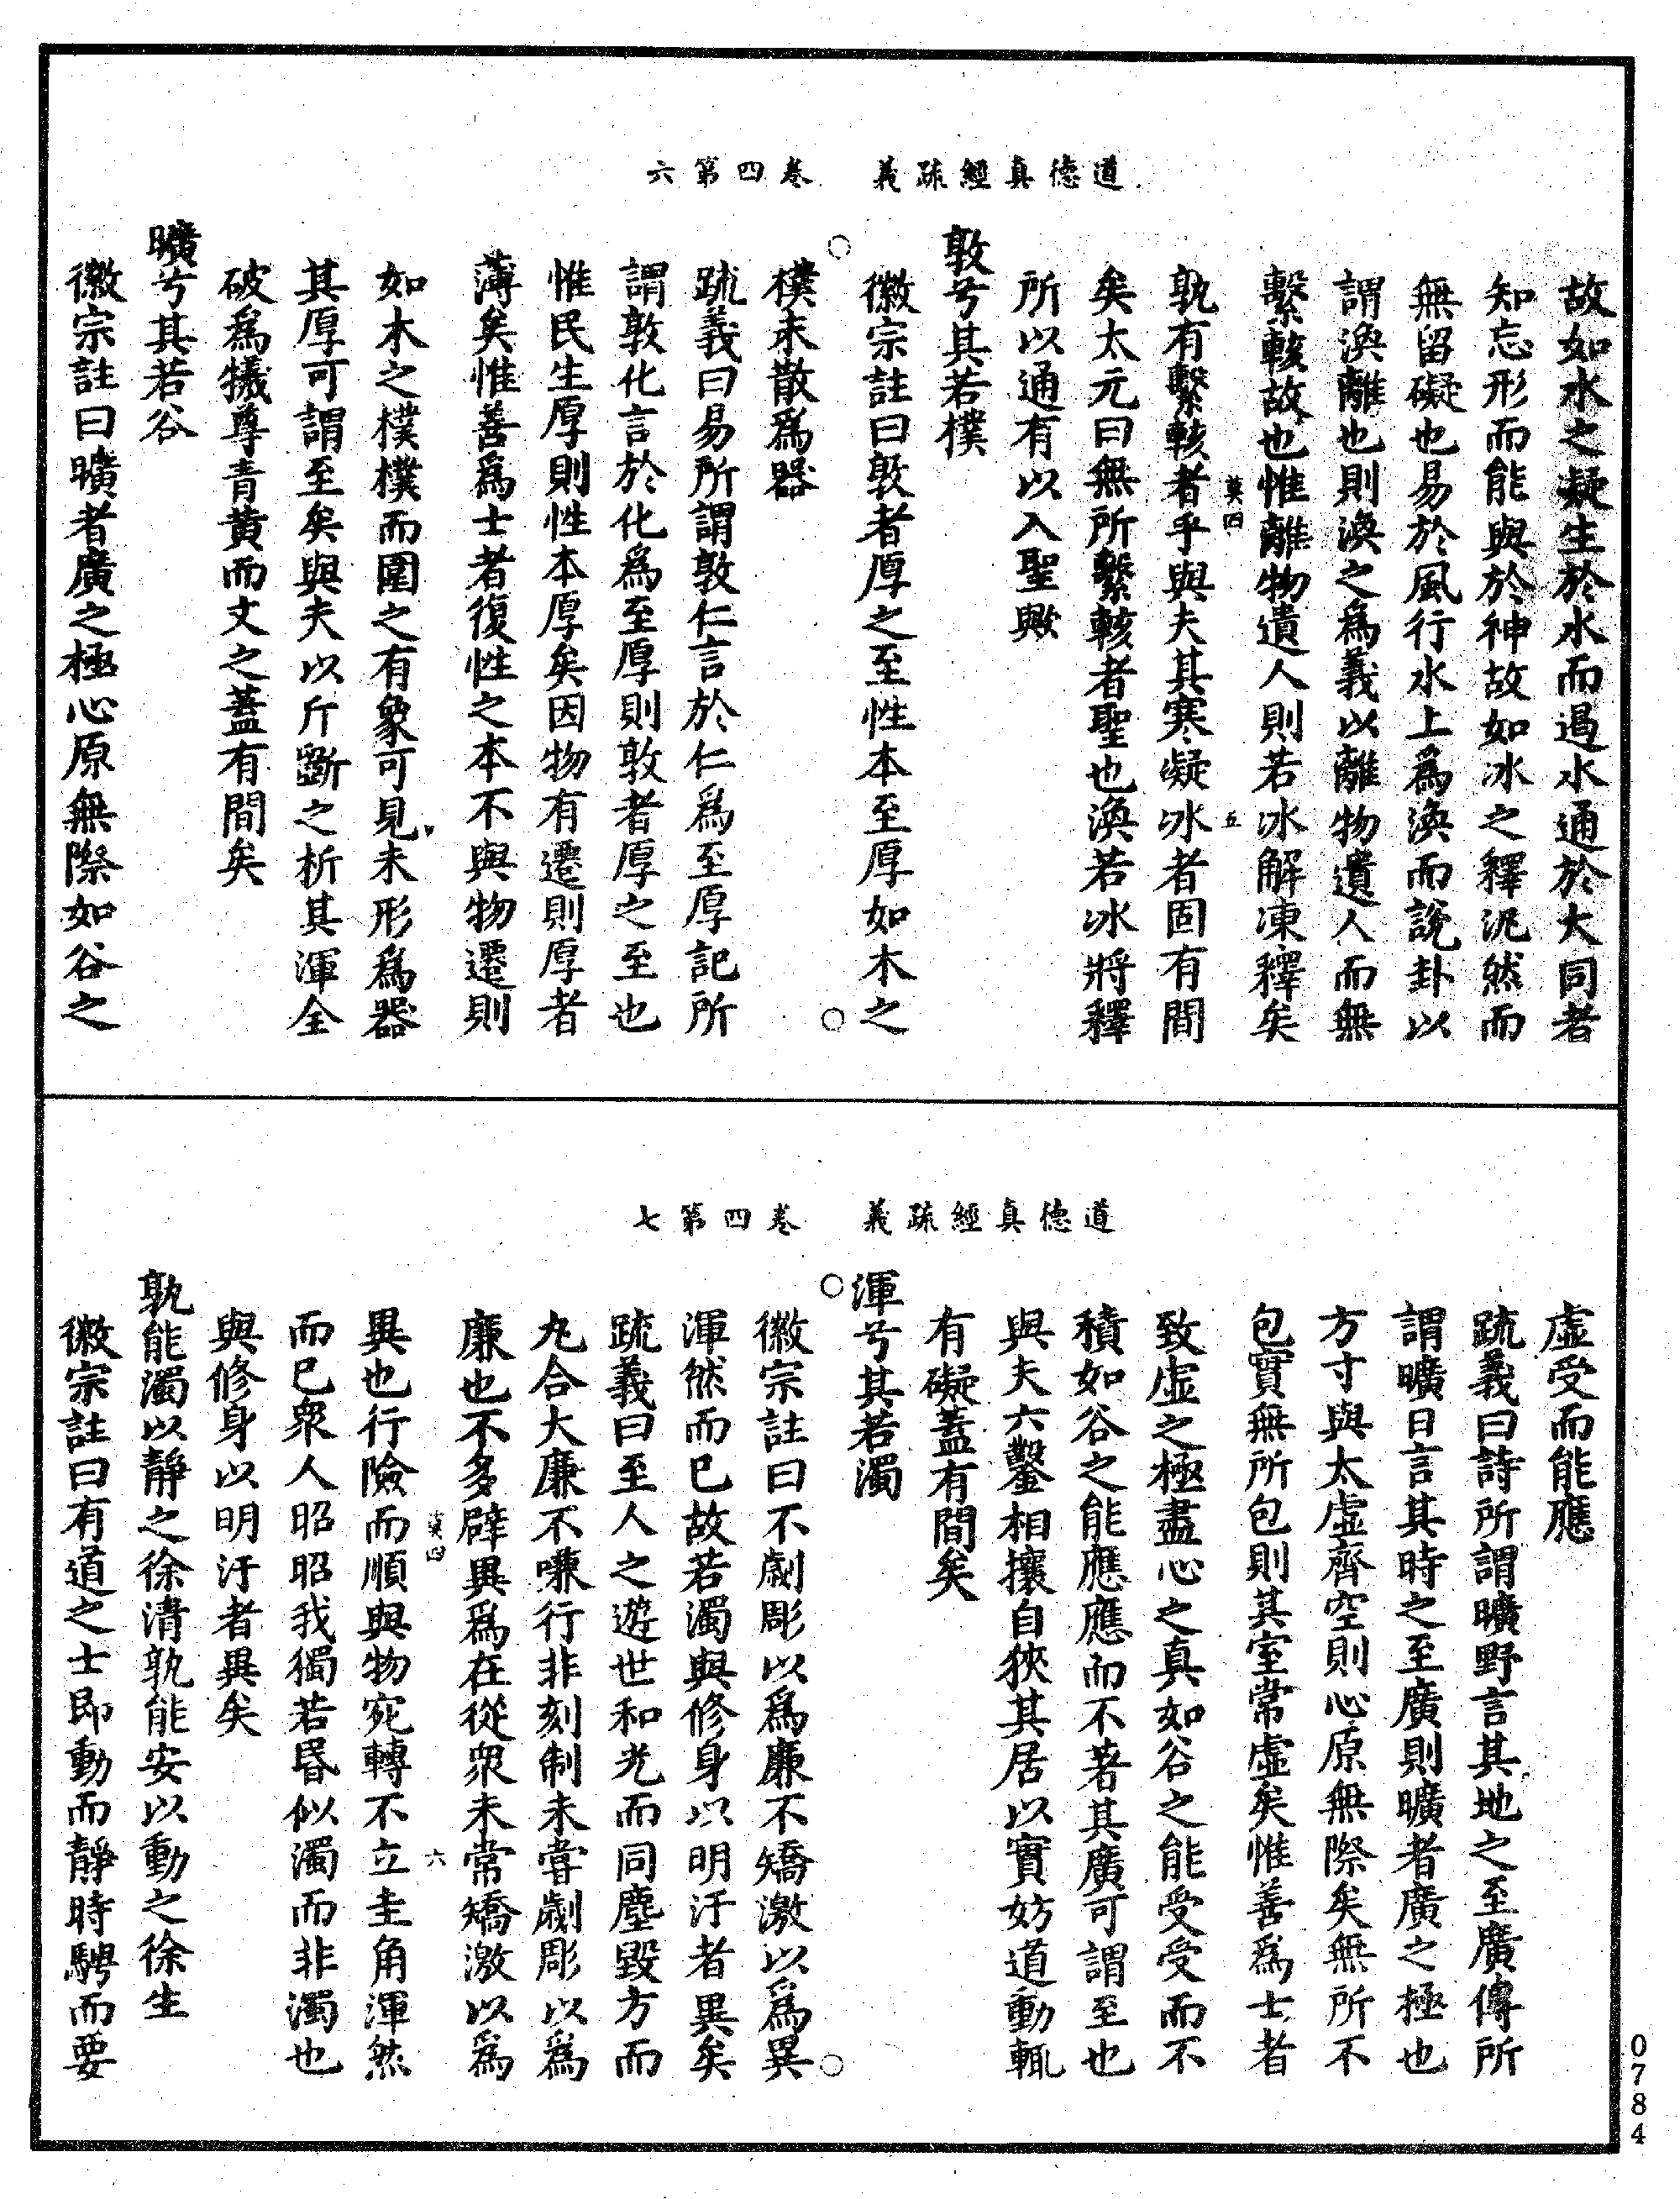 道德真經疏義　卷四第六
故如水之凝生於水而遏水通於大同者
知忘形而能與於神故如冰之釋泥然而
無留礙也易於風行水上為渙而說卦以
謂渙離也則渙之為義以離物遺人而無
繫輆故也惟離物遺人則若冰解凍釋矣
莫四　五
孰有繫輆者乎與夫其寒凝冰者固有間
矣太元曰無所繫輆者聖也渙若冰將釋
所以通有以入聖歟
敦兮其若樸
徽宗註曰敦者厚之至性本至厚如木之
樸未散為器
疏義曰易所謂敦仁言於仁為至厚記所
謂敦化言於化為至厚則敦者厚之至也
惟民生厚則性本厚矣因物有遷則厚者
薄矣惟善為士者復性之本不與物遷則
如木之樸樸而圍之有象可見未形為器
其厚可謂至矣與夫以斤斲之析其渾全
破為犧尊青黃而文之蓋有間矣
曠兮其若谷
徽宗註曰曠者廣之極心原無際如谷之
道德真經疏義　卷四第七
虛受而能應
疏義曰詩所謂曠野言其地之至廣傳所
謂曠日言其時之至廣則曠者廣之極也
方寸與太虛齊空則心原無際矣無所不
包實無所包則其室常虛矣惟善為士者
致虛之極盡心之真如谷之能受受而不
積如谷之能應應而不著其廣可謂至也
與夫六鑿相攘自狹其居以實妨道動輒
有礙蓋有間矣
渾兮其若濁
徽宗註曰不劌彫以為廉不矯激以為異
渾然而已故若濁與修身以明汙者異矣
疏義曰至人之遊世和光而同塵毀方而
瓦合大廉不嗛行非刻制未嘗劌彫以為
廉也不多辟異為在從眾未常矯激以為
莫四　六
異也行險而順與物宛轉不立圭角渾然
而已眾人昭昭我獨若昏似濁而非濁也
與修身以明汙者異矣
孰能濁以靜之徐清孰能安以動之徐生
徽宗註曰有道之士即動而靜時騁而要
0784